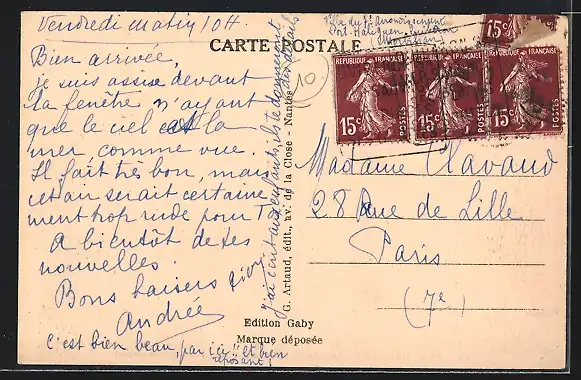 Vendredi matin 10H
Bien arrivée,
je suis assise devant
la fenêtre n'ayant
que le ciel et la
mer comme vue.
Il fait très bon, mais
cet air serait certaine
ment trop rude pour Toi
A bientôt de tes
nouvelles.
Bons baisers
Andrée
c'est bien beau, par ici!! et bien
reposant!
J'écris aux enfants, ils te donneront
des détails
CARTE POSTALE
10
G. Artaud, édit., av. de la Close - Nantes
Edition Gaby
Marque déposée
Port-Haliguen, Quiberon
Morbihan
15c
REPUBLIQUE FRANÇAISE
15c POSTES
REPUBLIQUE FRANÇAISE
15c POSTES
REPUBLIQUE FRANÇAISE
15c POSTES
Madame Clavaud
28 Rue de Lille
Paris
(7e)